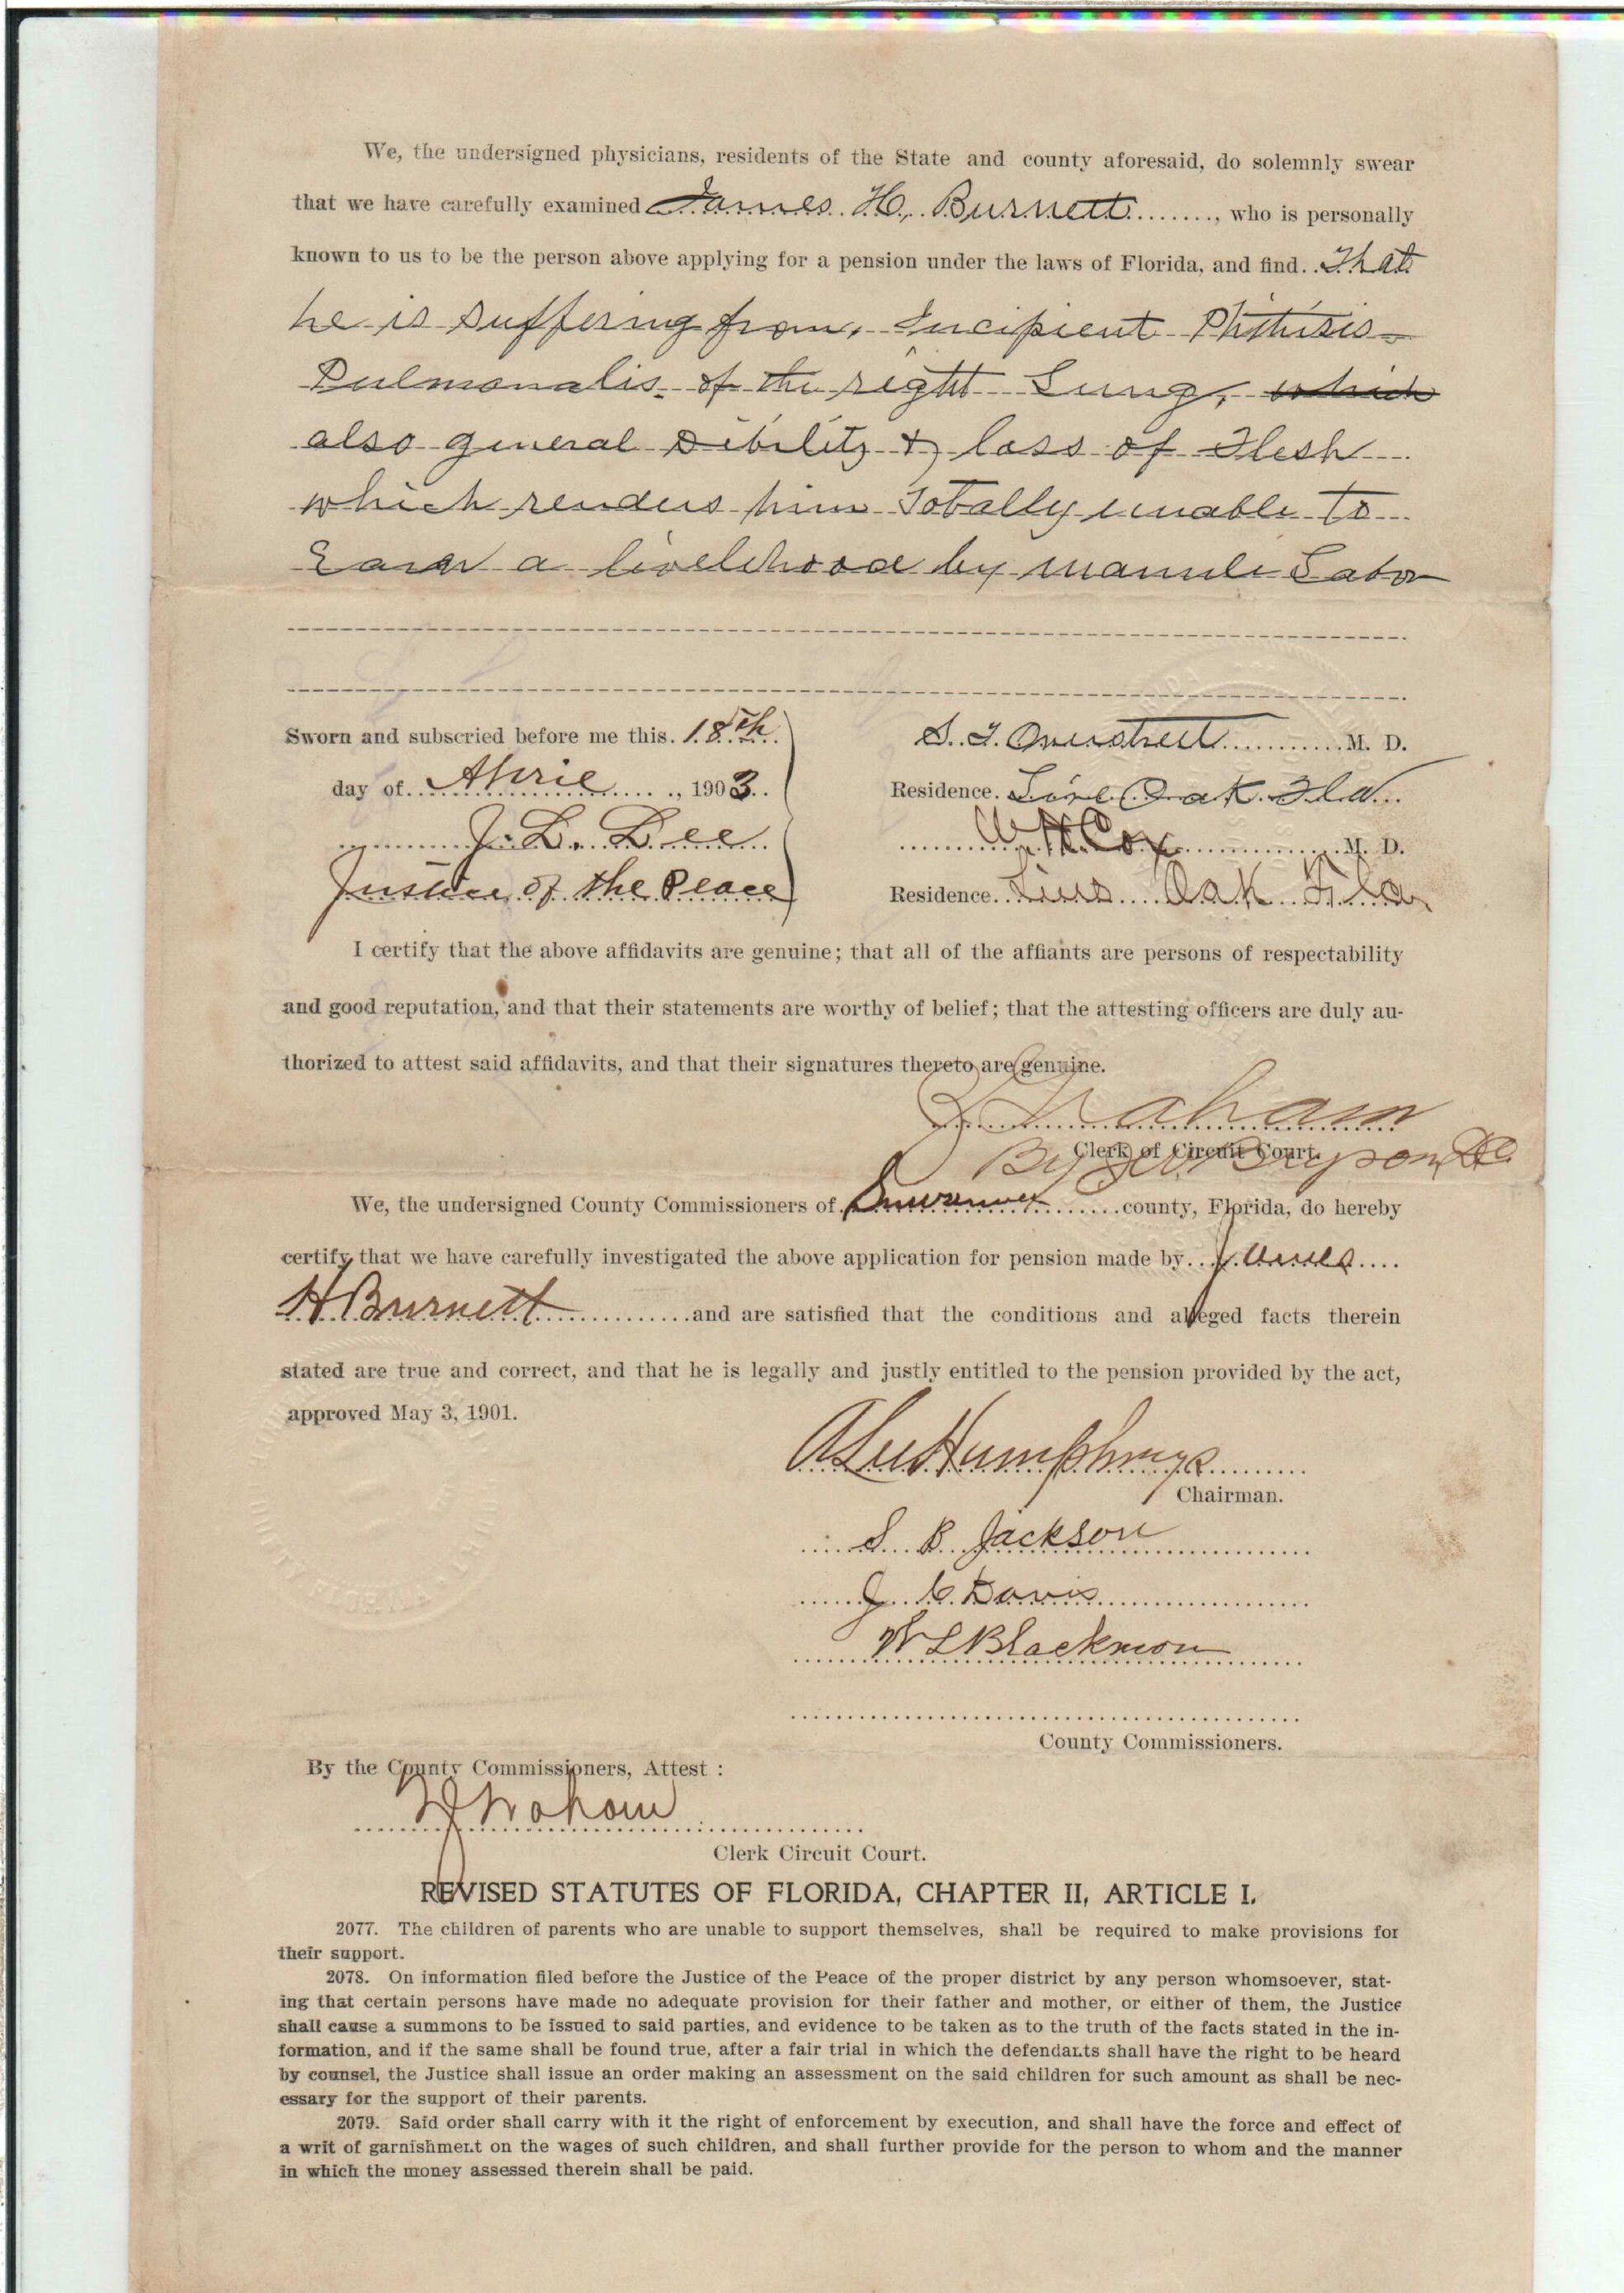 We, the undersigned physicians, residents of the State and county aforesaid, do solemnly swear
that we have carefully examined James H. Burnett, who is personally
known to us to be the person above applying for a pension under the laws of Florida, and find. That
he is suffering from, Incipient Phthisis
Pulmonalis. of the right Lung, which
also general Debility & loss of Flesh
which renders him Totally unable to
Earn a livelihood by manule Labor
Sworn and subscried before me this. 18th
day of April, 1903
J. L. Lee
Justice of the Peace
S. T. Overstreet M. D.
Residence. Live Oak Fla
W H Cox M. D.
Residence. Live Oak Fla
I certify that the above affidavits are genuine; that all of the affiants are persons of respectability
and good reputation, and that their statements are worthy of belief; that the attesting officers are duly au-
thorized to attest said affidavits, and that their signatures thereto are genuine.
Clerk of Circuit Court.
By Bryson DC
We, the undersigned County Commissioners of Suwannee county, Florida, do hereby
certify that we have carefully investigated the above application for pension made by James
H Burnett and are satisfied that the conditions and alleged facts therein
stated are true and correct, and that he is legally and justly entitled to the pension provided by the act,
approved May 3, 1901.
A Lee Humphrys
Chairman.
S B Jackson
J C Davis
W L Blackmon
County Commissioners.
By the County Commissioners, Attest :
Clerk Circuit Court.
REVISED STATUTES OF FLORIDA, CHAPTER II, ARTICLE I.
2077. The children of parents who are unable to support themselves, shall be required to make provisions for
their support.
2078. On information filed before the Justice of the Peace of the proper district by any person whomsoever, stat-
ing that certain persons have made no adequate provision for their father and mother, or either of them, the Justice
shall cause a summons to be issued to said parties, and evidence to be taken as to the truth of the facts stated in the in-
formation, and if the same shall be found true, after a fair trial in which the defendants shall have the right to be heard
by counsel, the Justice shall issue an order making an assessment on the said children for such amount as shall be nec-
essary for the support of their parents.
2079. Said order shall carry with it the right of enforcement by execution, and shall have the force and effect of
a writ of garnishment on the wages of such children, and shall further provide for the person to whom and the manner
in which the money assessed therein shall be paid.